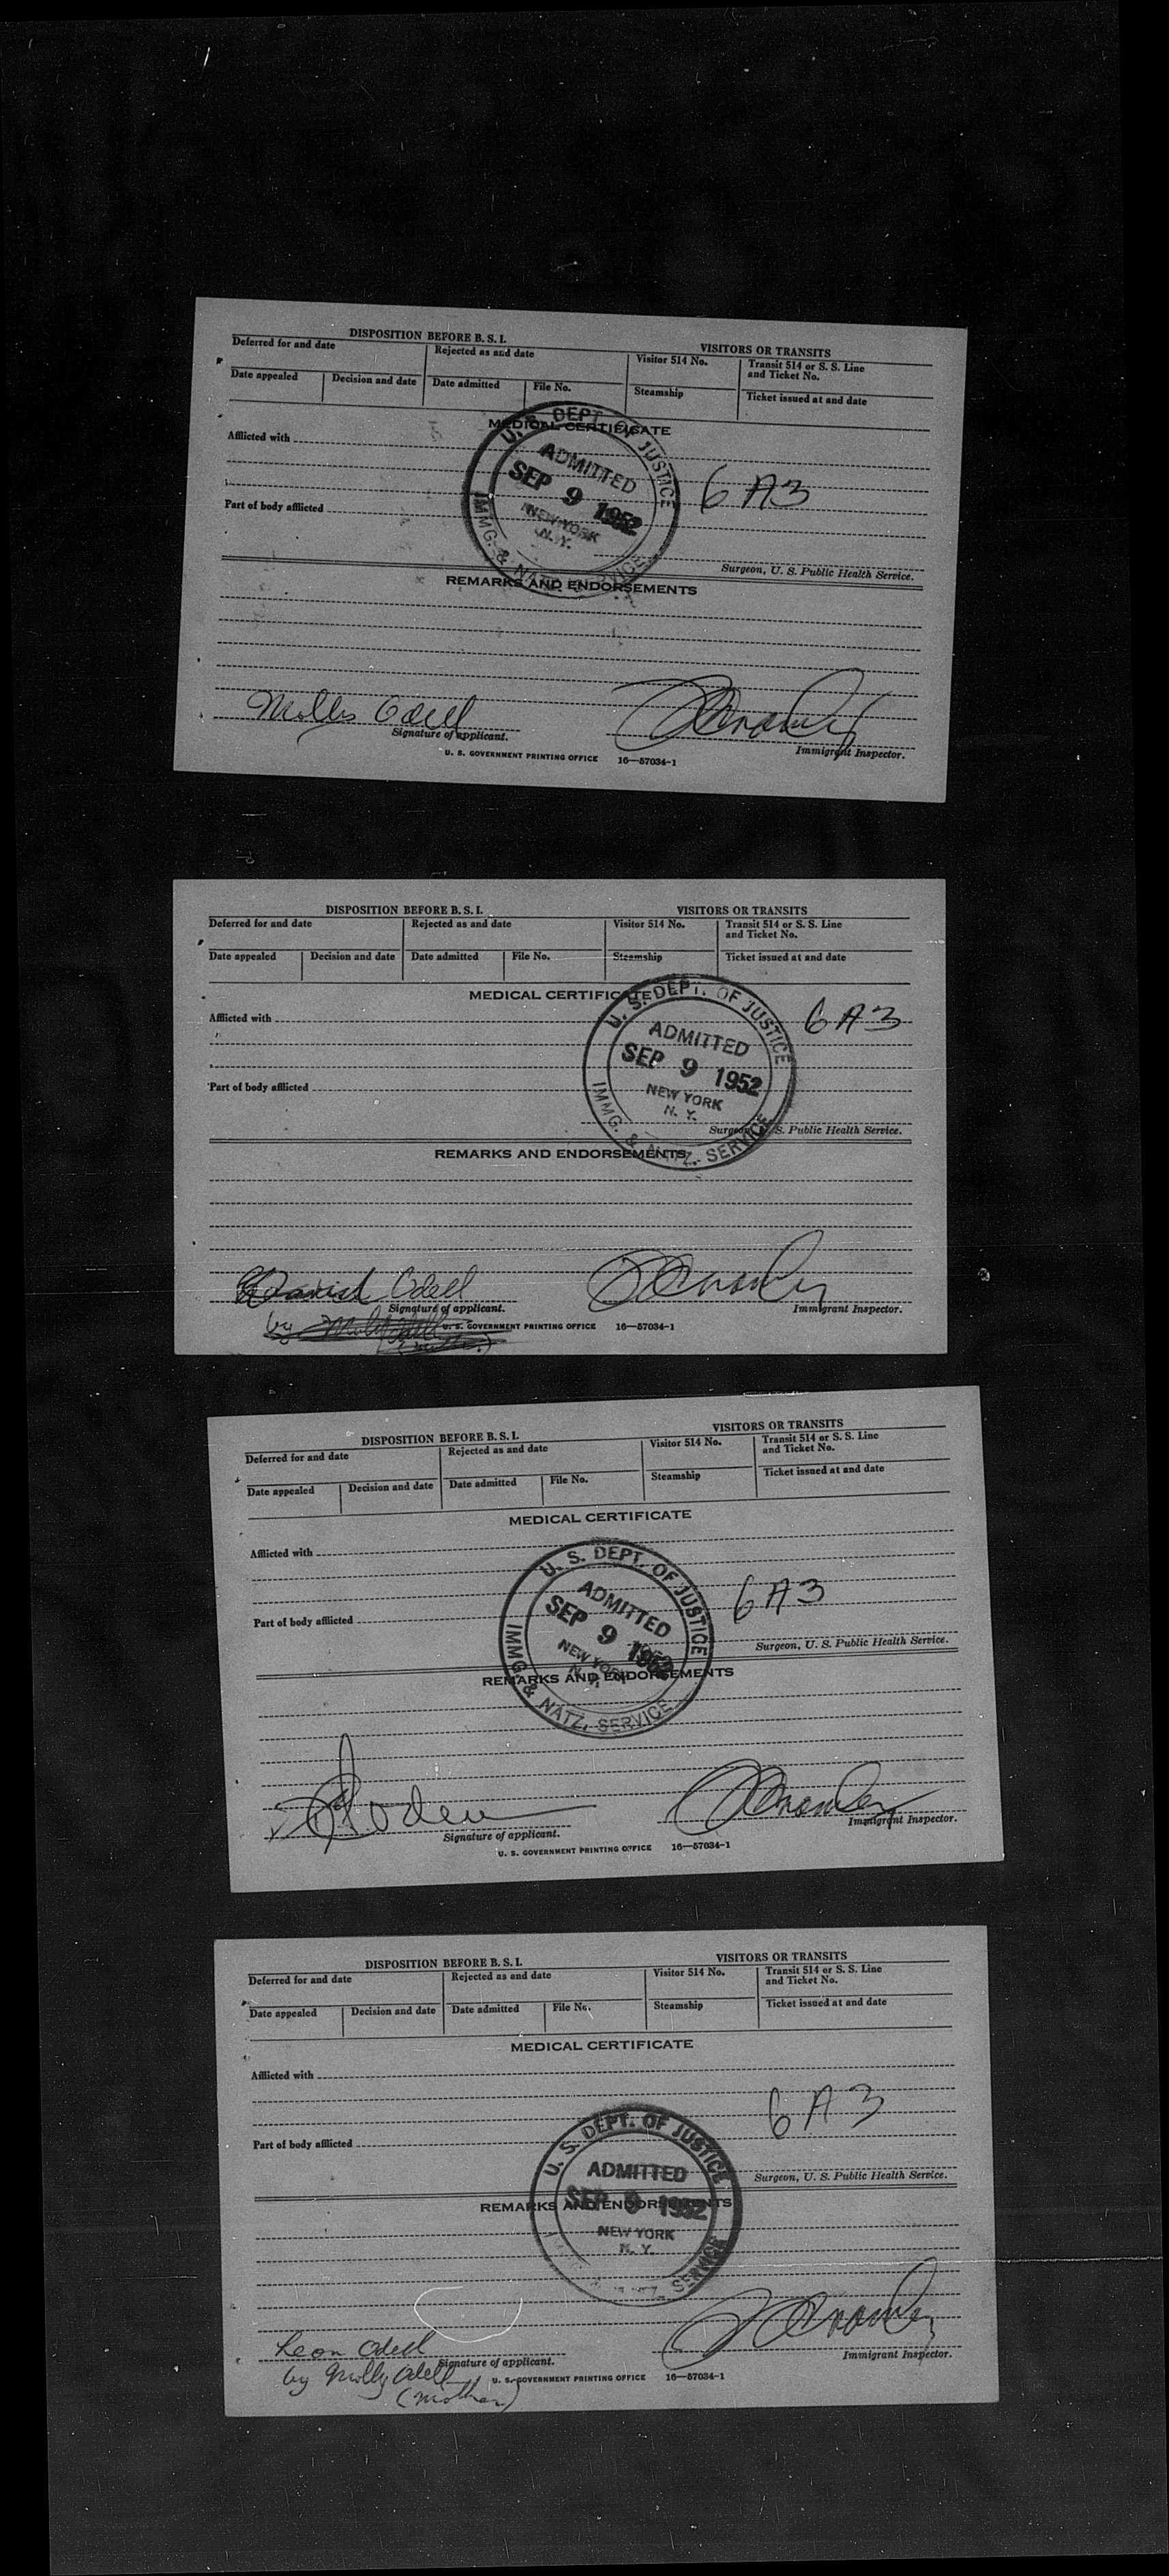 DISPOSITION BEFORE B. S. I.
VISITORS OR TRANSITS
Deferred for and date
Rejected as and date
Visitor 514 No.
Transit 514 or S. S. Line
and Ticket No.
Date appealed
Decision and date
Date admitted
File No.
Steamship
Ticket issued at and date
MEDICAL CERTIFICATE
Afflicted with
U. S. DEPT. OF JUSTICE
ADMITTED
SEP 9 1952
NEW YORK
N. Y.
IMMG. & NATZ. SERVICE
6 A3
Part of body afflicted
Surgeon, U. S. Public Health Service.
REMARKS AND ENDORSEMENTS
Odell
Signature of applicant.
Immigrant Inspector.
U. S. GOVERNMENT PRINTING OFFICE 16—57034-1
DISPOSITION BEFORE B. S. I.
VISITORS OR TRANSITS
Deferred for and date
Rejected as and date
Visitor 514 No.
Transit 514 or S. S. Line
and Ticket No.
Date appealed
Decision and date
Date admitted
File No.
Steamship
Ticket issued at and date
MEDICAL CERTIFICATE
Afflicted with
U. S. DEPT. OF JUSTICE
ADMITTED
SEP 9 1952
NEW YORK
N. Y.
IMMG. & NATZ. SERVICE
6 A3
Part of body afflicted
Surgeon, U. S. Public Health Service.
REMARKS AND ENDORSEMENTS
David Odell
Signature of applicant.
Immigrant Inspector.
by
U. S. GOVERNMENT PRINTING OFFICE 16—57034-1
DISPOSITION BEFORE B. S. I.
VISITORS OR TRANSITS
Deferred for and date
Rejected as and date
Visitor 514 No.
Transit 514 or S. S. Line
and Ticket No.
Date appealed
Decision and date
Date admitted
File No.
Steamship
Ticket issued at and date
MEDICAL CERTIFICATE
Afflicted with
U. S. DEPT. OF JUSTICE
ADMITTED
SEP 9 1952
NEW YORK
N. Y.
IMMG. & NATZ. SERVICE
6 A3
Part of body afflicted
Surgeon, U. S. Public Health Service.
REMARKS AND ENDORSEMENTS
Signature of applicant.
Immigrant Inspector.
U. S. GOVERNMENT PRINTING OFFICE 16—57034-1
DISPOSITION BEFORE B. S. I.
VISITORS OR TRANSITS
Deferred for and date
Rejected as and date
Visitor 514 No.
Transit 514 or S. S. Line
and Ticket No.
Date appealed
Decision and date
Date admitted
File No.
Steamship
Ticket issued at and date
MEDICAL CERTIFICATE
Afflicted with
U. S. DEPT. OF JUSTICE
ADMITTED
SEP 9 1952
NEW YORK
N. Y.
SERVICE
6 A3
Part of body afflicted
Surgeon, U. S. Public Health Service.
REMARKS AND ENDORSEMENTS
Leon Odell
Signature of applicant.
Immigrant Inspector.
by Molly Odell
(mother)
U. S. GOVERNMENT PRINTING OFFICE 16—57034-1